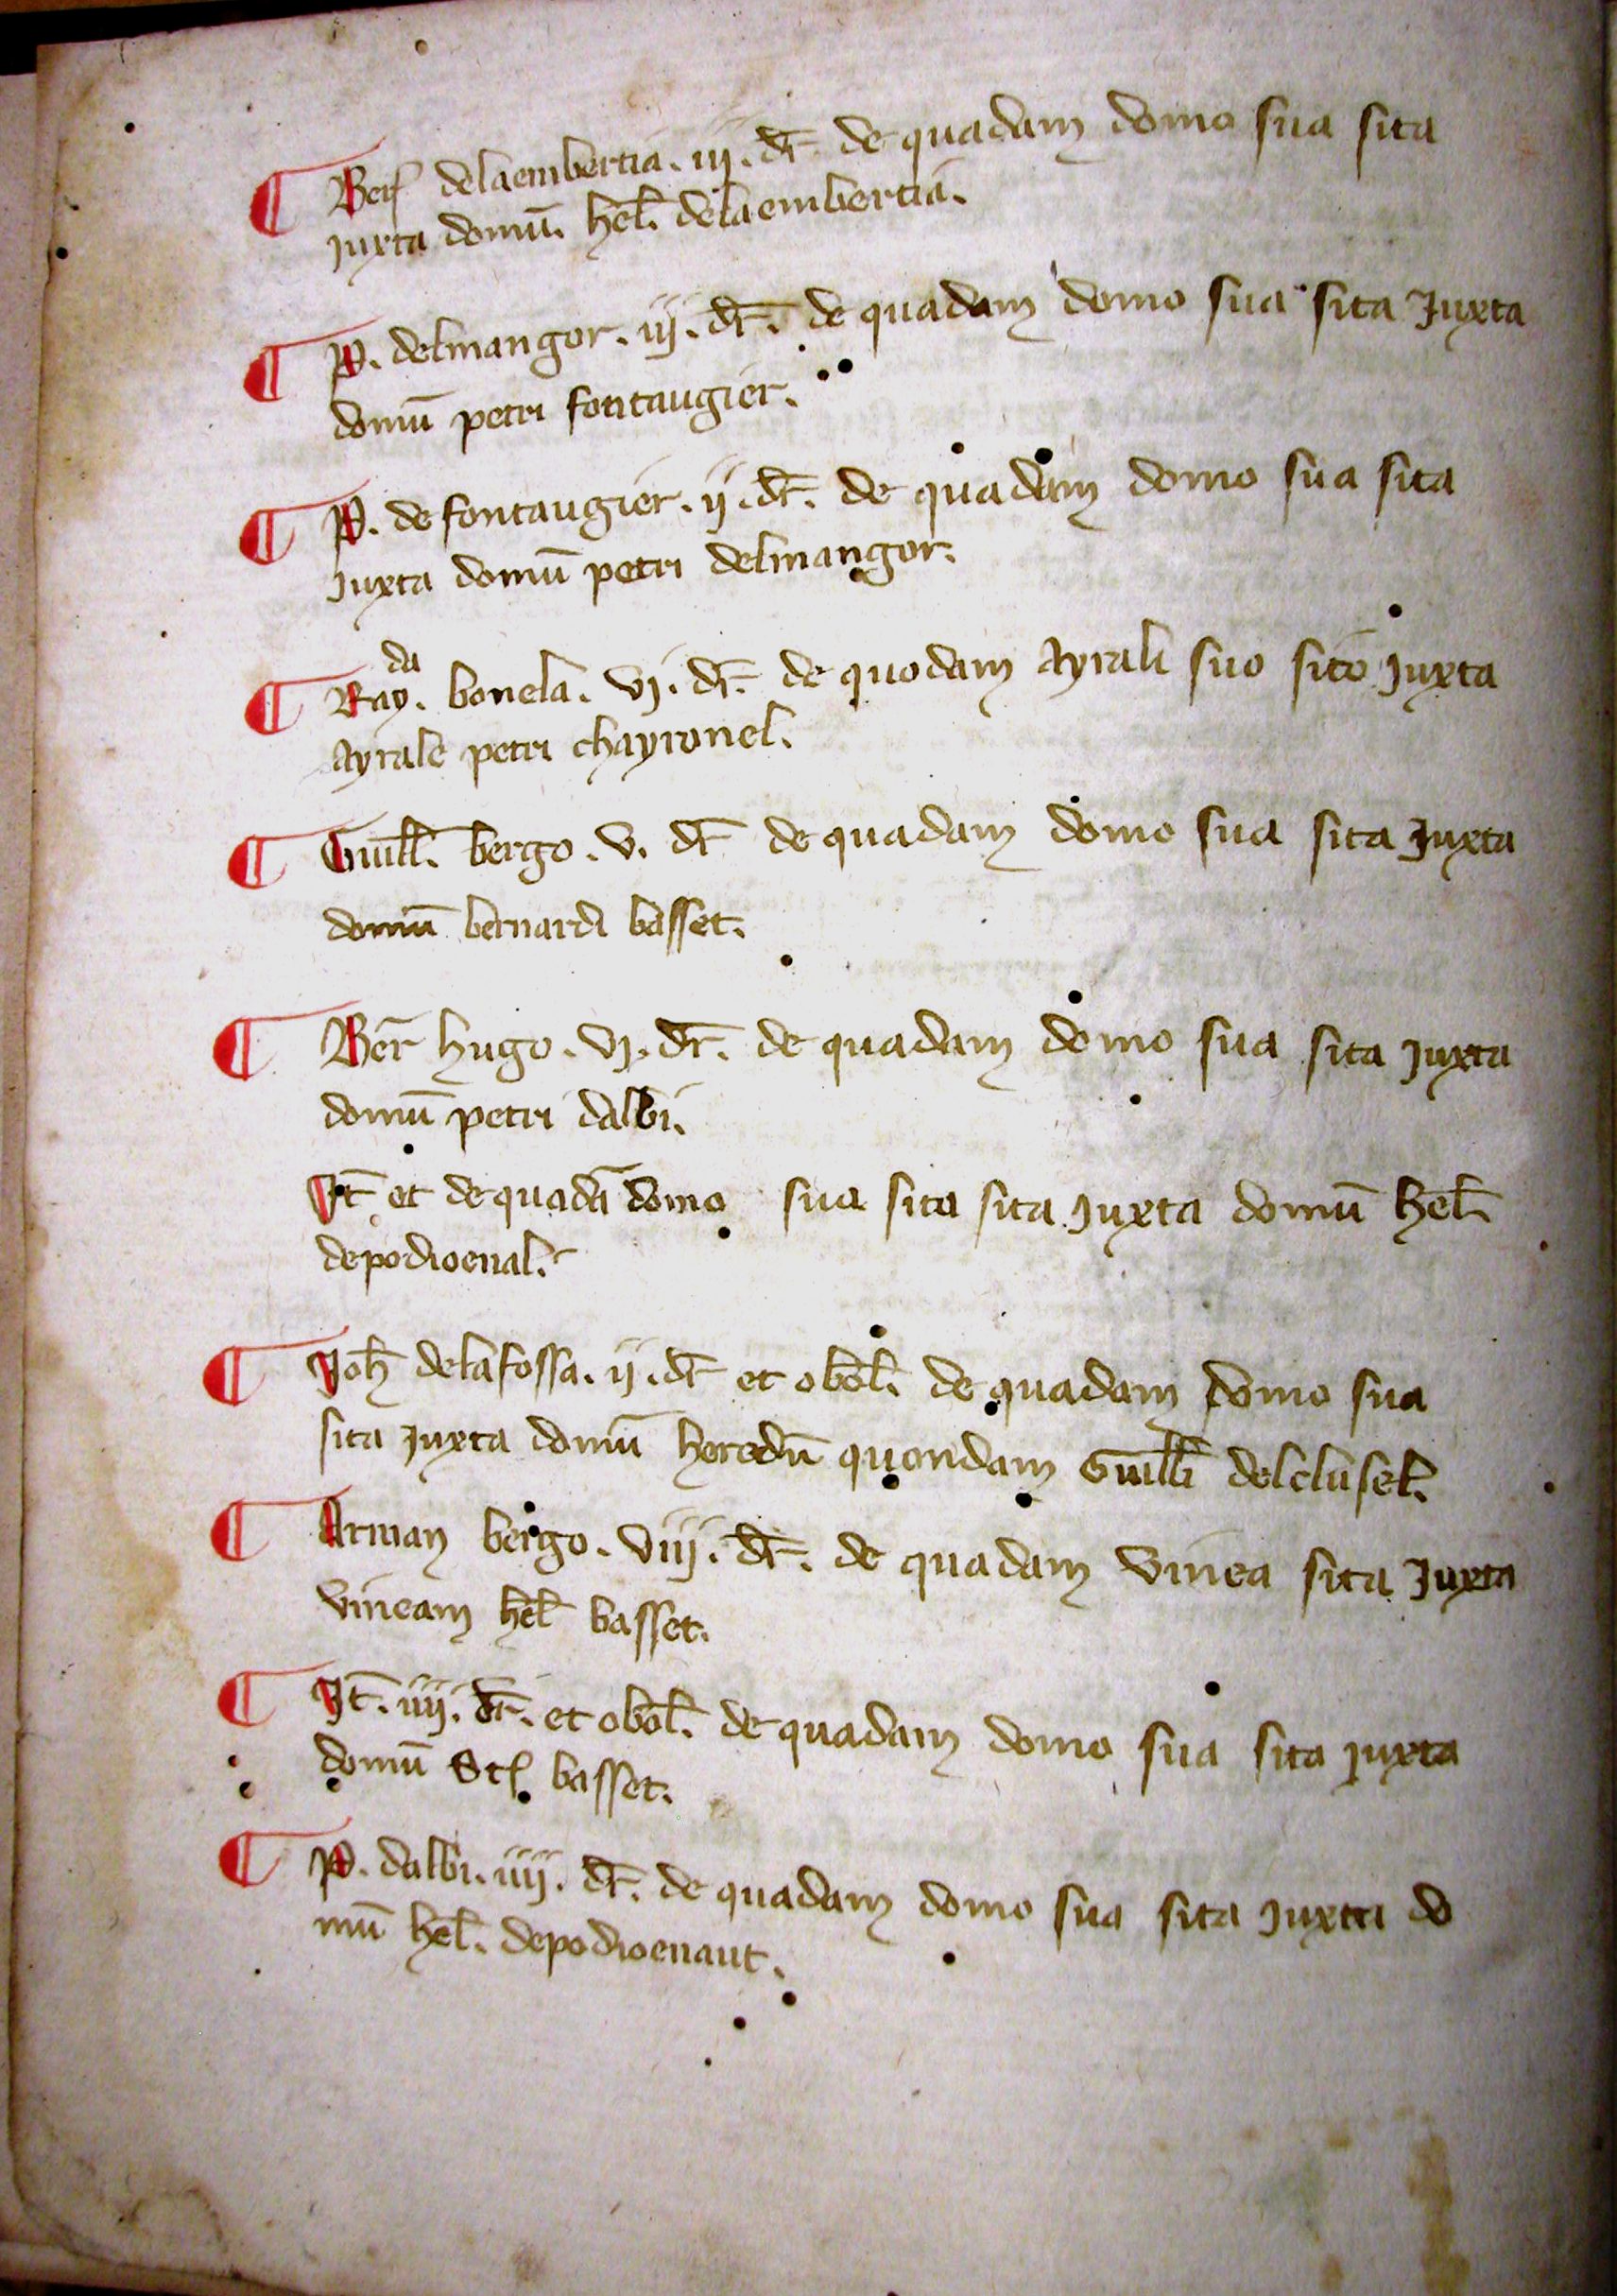 ¶ Ber̃ delaembertia. iij. dr̃. de quadam domo sua sita
juxta domū. hel̃. delaembertia.
¶ P. delmangor. iij. dr̃. de quadam domo sua sita Juxta
domū petri fontaugier.
¶ P. de fontaugier. ij. dr̃. de quadam domo sua sita
juxta domū petri delmangor.
¶ Rayda. bonela. vj. dr̃. de quodam Ayrali suo sito juxta
Ayrale petri chayronel.
¶ Guill̃. bergo. v. dr̃ de quadam domo sua sita Juxta
domū bernardi basset.
¶ Ber̃ hugo. vj. dr̃. de quadam domo sua sita juxta
domū petri dalbi.
Jt̃ et de quadā domo sua sita sita juxta domū hel̃
depodioenal.
¶ Joh̃ delafossa. ij. dr̃ et obol̃. de quadam domo sua
sita juxta domū heredū quondam Guill̃i delclusel.
¶ Arman bergo. viij. dr̃. de quadam vinea sita Juxta
vineam hel̃ basset.
¶ Jt̃. iiij. dr̃. et obol̃. de quadam domo sua sita juxta
domū St̃ basset.
¶ P. dalbi. iiij. dr̃. de quadam domo sua sita juxta do
mū hel̃. depodioenaut.